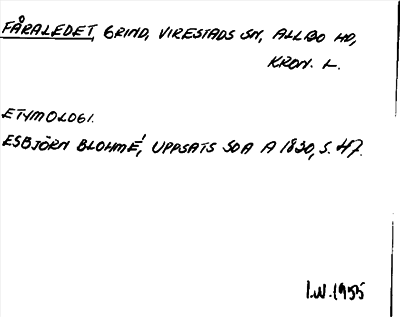 FÅRALEDET, GRIND, VIRESTADS SN, ALLBO HD,
KRON. L.
ETYMOLOGI.
ESBJÖRN BLOHMÉ, UPPSATS SOA A 1830, S. 47.
I.W. 1955